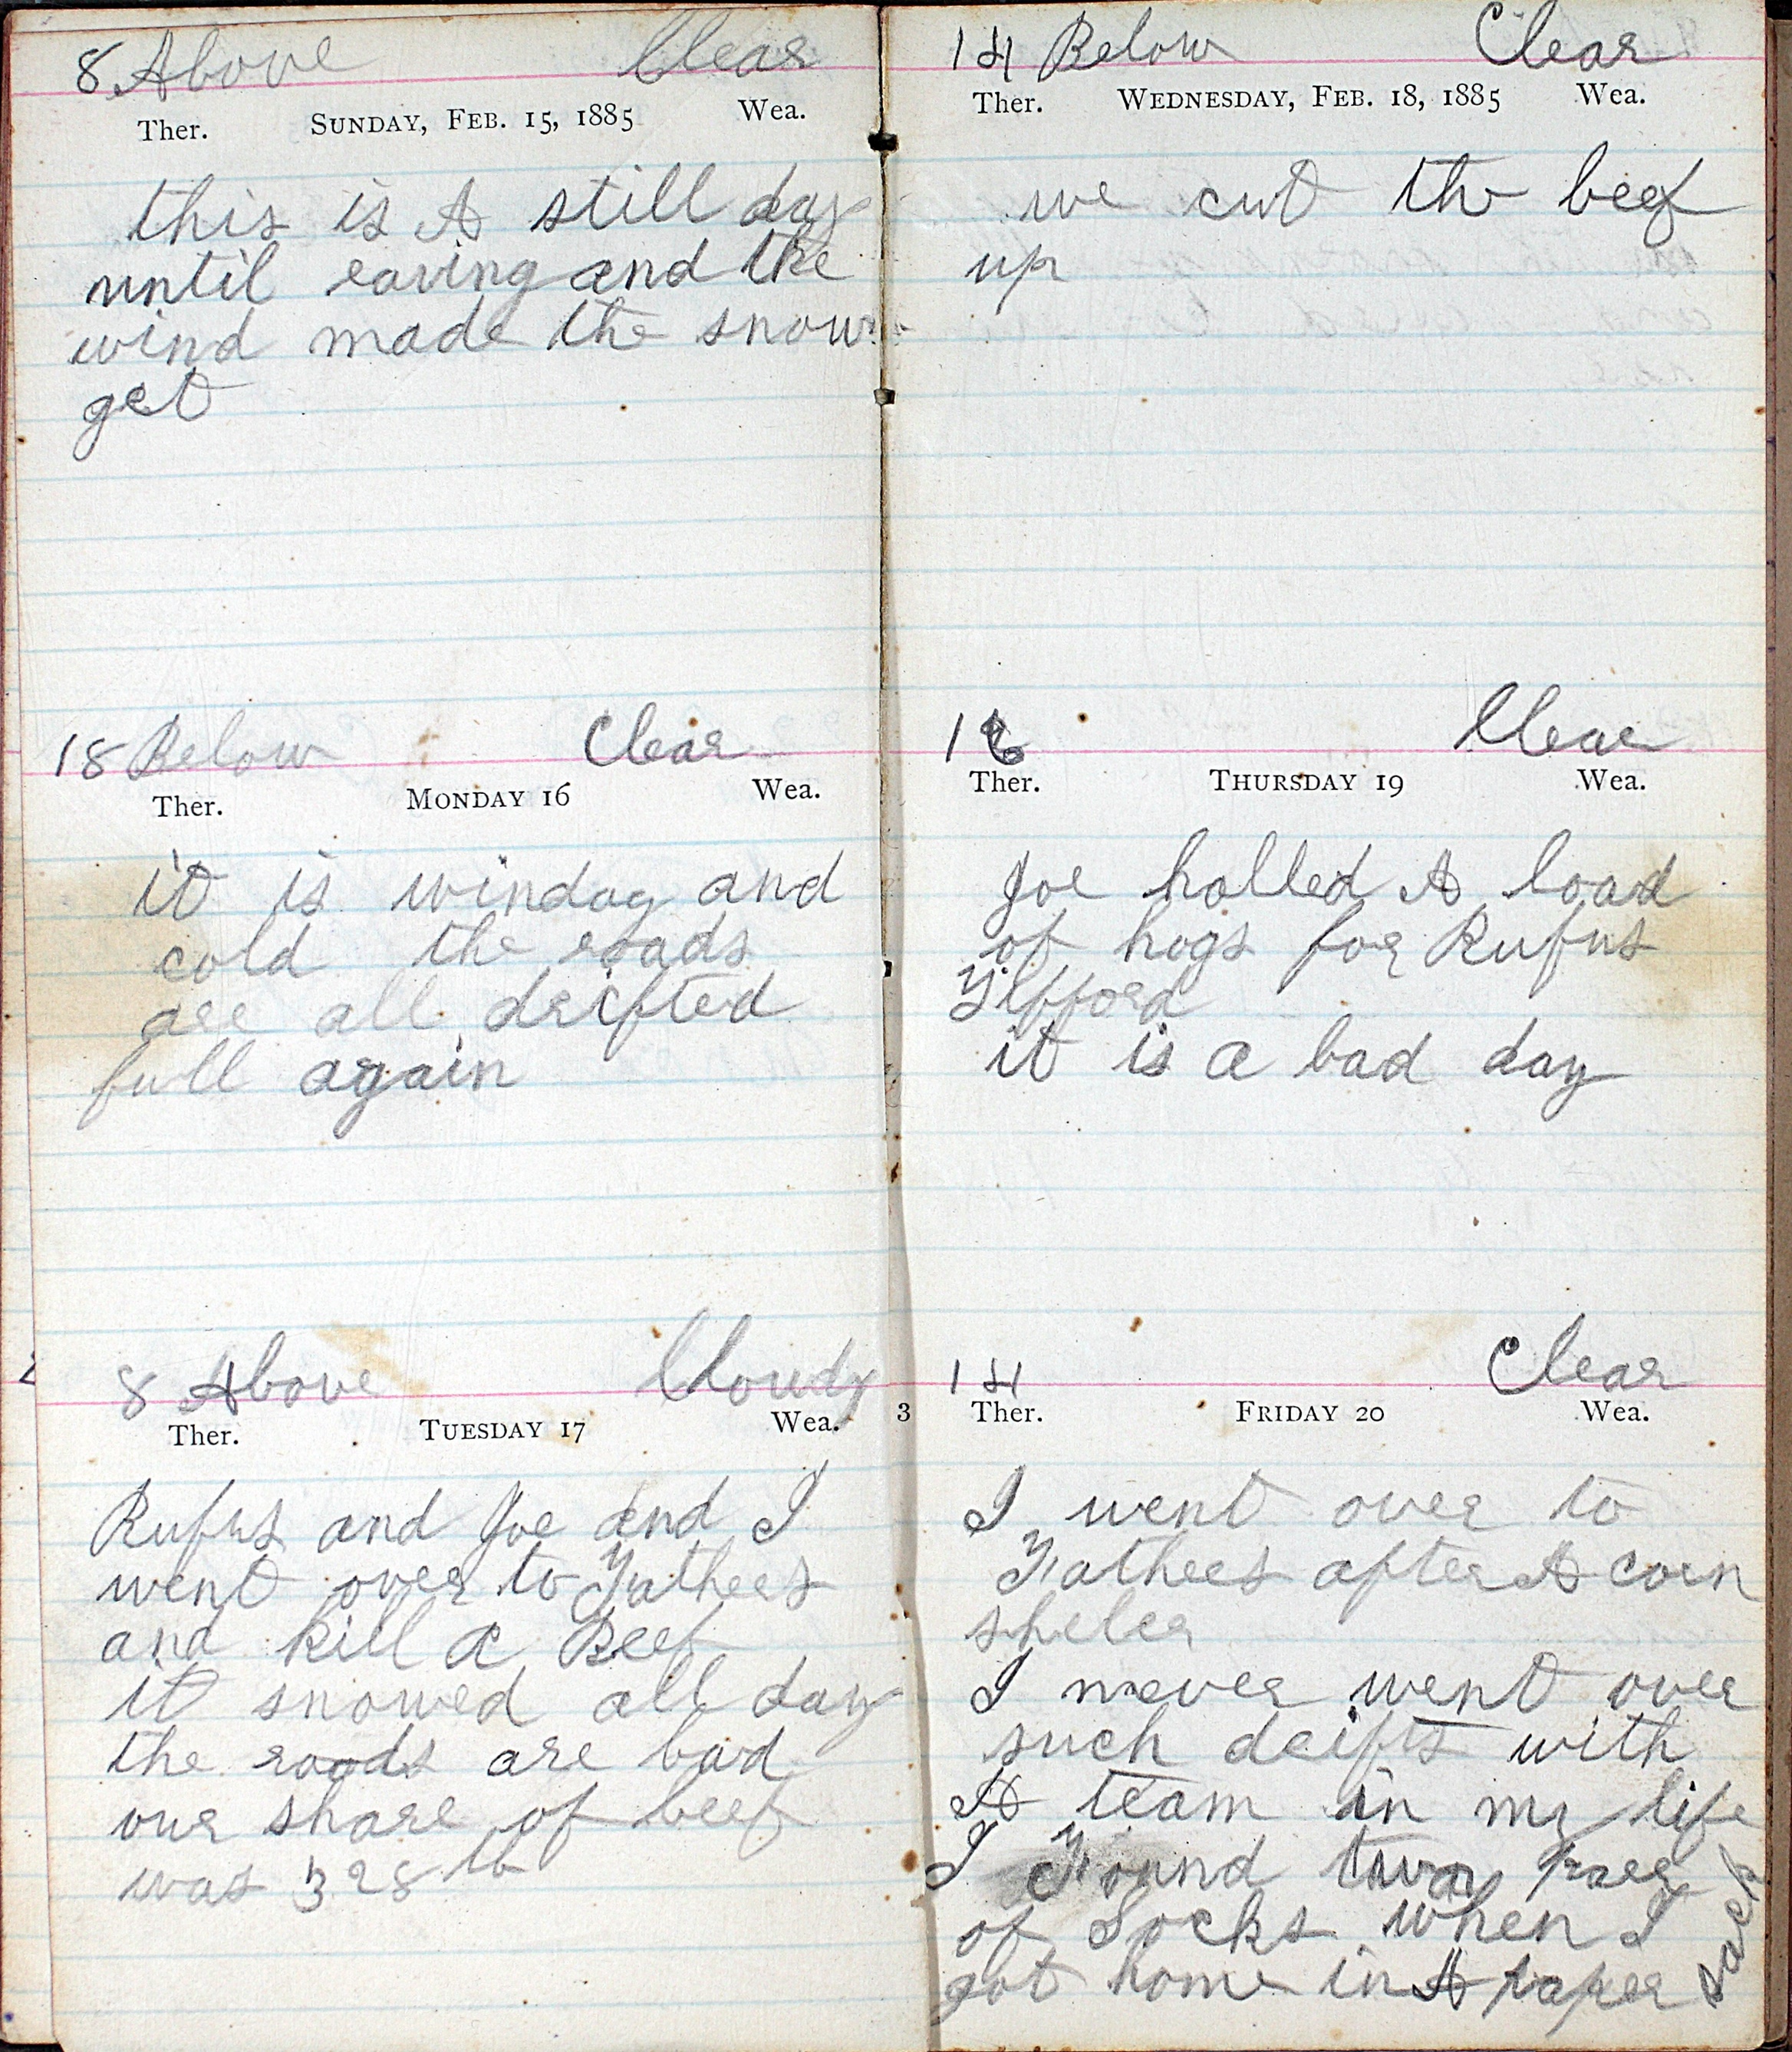 8 Above Clear
Ther. Sunday, Feb. 15, 1885 Wea.
this is A still day
until eaving and the
wind made the snow
get
18 Below Clear
Ther. Monday 16 Wea.
it is winday and
cold the roads
are all drifted
full again
8 Above Cloudy
Ther. Tuesday 17 Wea.
Rufus and Joe and I
went over to Fathers
and kill a Beef
it snowed all day
the roads are bad
our share of beef
was 328 lb
14 Below Clear
Ther. Wednesday, Feb. 18, 1885 Wea.
we cut the beef
up
16 Clear
Ther. Thursday 19 Wea.
Joe holled A load
of hogs for Rufus
it is a bad day
14 Clear
3 Ther. Friday 20 Wea.
I went over to
Fathers after A corn
sheler
I never went over
such drifts with
A team in my life
I Found two paer
of Socks when I
got home in A paper sack